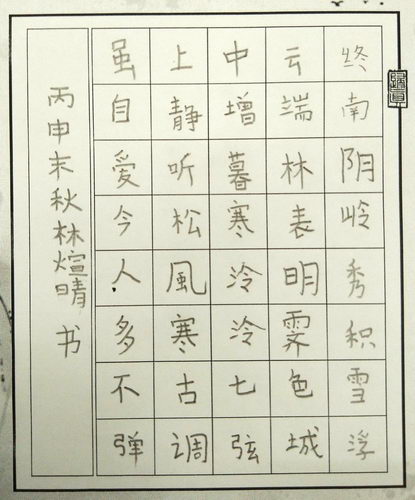 终南阴岭秀积雪浮
云端林表明霁色城
中增暮寒泠泠七弦
上静听松風寒古调
虽自爱今人多不弹
丙申末秋林煊晴 书